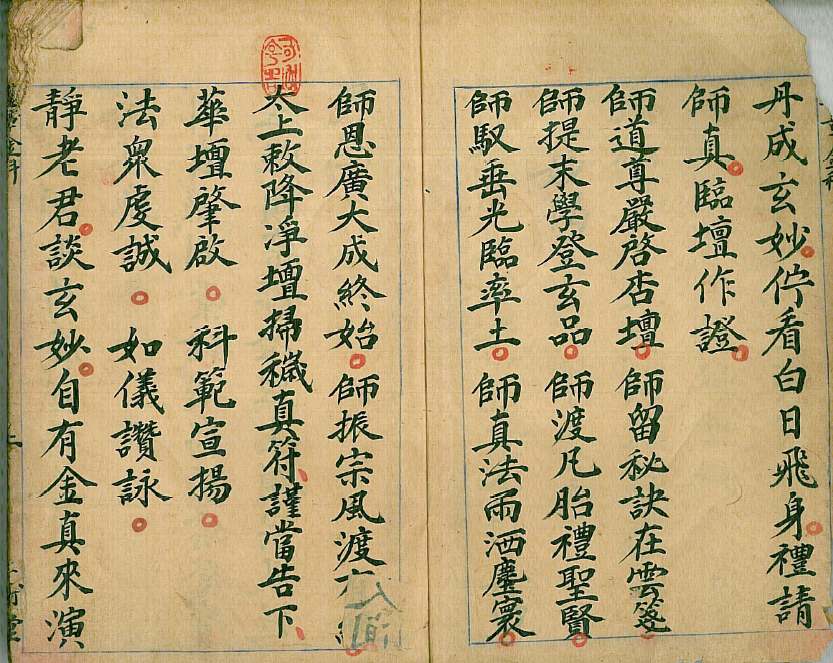 丹成玄妙佇看白日飛身禮請
師真臨壇作證
師道尊嚴啓杏壇 師留秘訣在雲笈
師提末學登玄品 師渡凡胎禮聖賢
師馭垂光臨率土 師真法雨洒塵寰
師恩廣大成終始 師振宗風渡
太上敕降淨壇掃穢真符謹當告下
華壇肇啟 科範宣揚
法衆虔誠 如儀讚詠
靜老君談玄妙自有金真來演